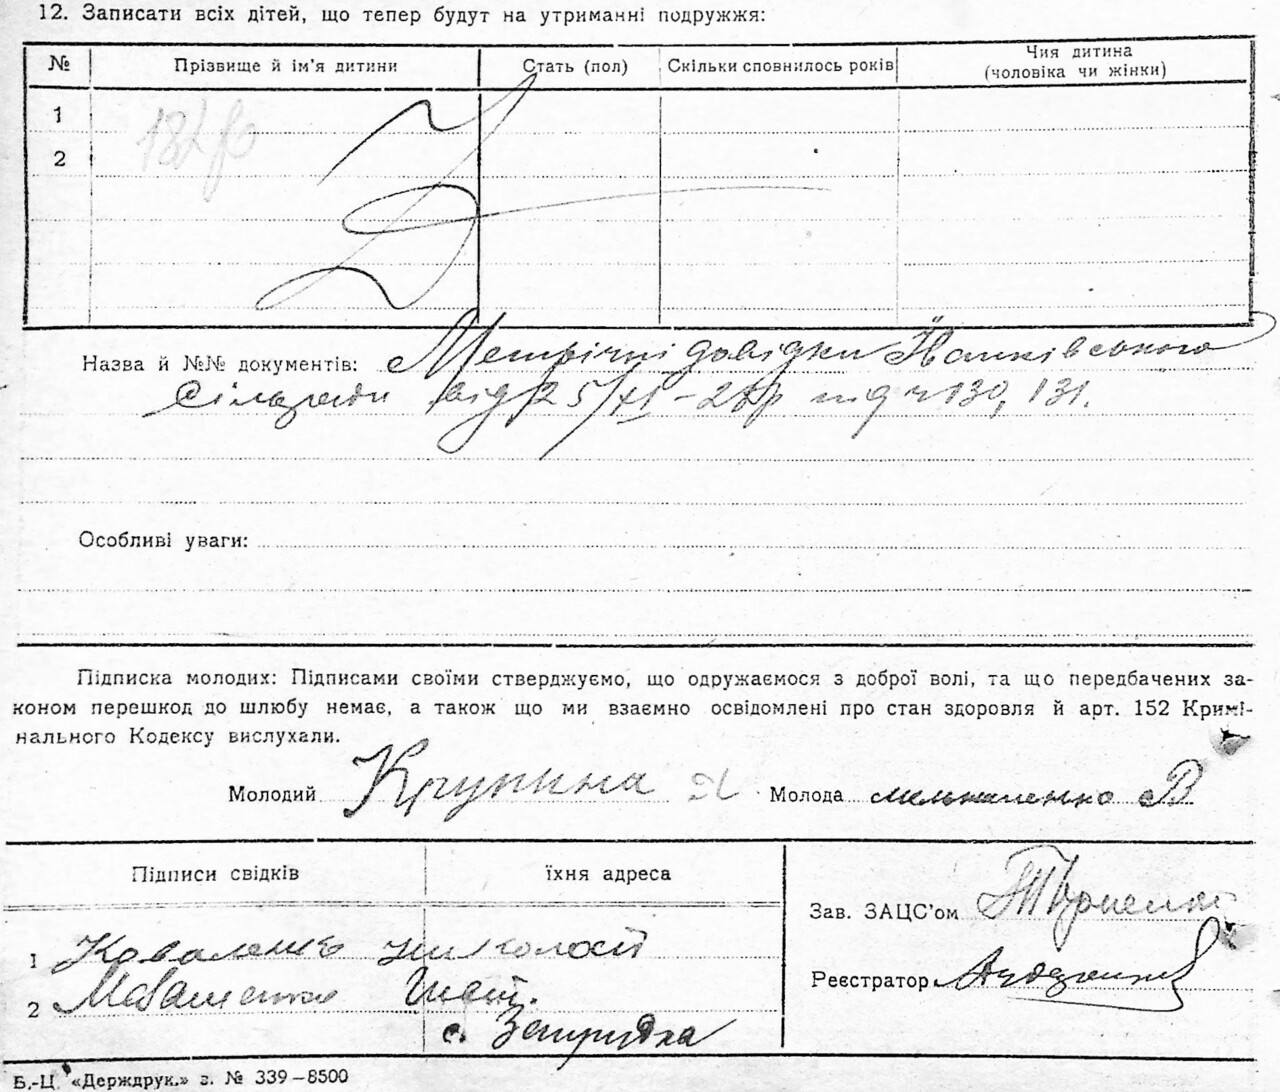 12. Записати всіх дітей, що тепер будут на утриманні подружжя:
№ Прізвище й ім'я дитини Стать (пол) Скільки сповнилось років Чия дитина
(чоловіка чи жінки)
1
2
Назва й №№ документів: Метричні довідки
Сільради від 25/XI - 28р під ч 130, 131.
Особливі уваги:
Підписка молодих: Підписами своїми стверджуємо, що одружаємося з доброї волі, та що передбачених за-
коном перешкод до шлюбу немає, а також що ми взаємно освідомлені про стан здоровля й арт. 152 Кримі-
нального Кодексу вислухали.
Молодий Крупина Молода В
Підписи свідків їхня адреса
Зав. ЗАЦС'ом
1 Коваленко
Реєстратор
2
с.
Б.-Ц. «Держдрук.» з. № 339–8500